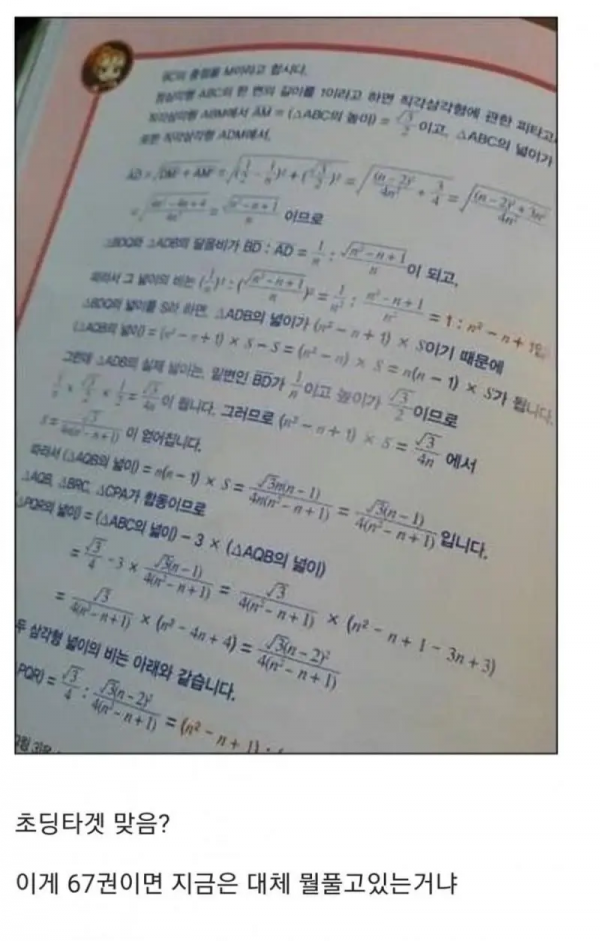 BC의 중점을 M이라고 합시다.
정삼각형 ABC의 한 변의 길이를 1이라고 하면 직각삼각형에 관한 피타고
직각삼각형 ABM에서 AM = (△ABC의 높이) = √3/2 이고, △ABC의 넓이가
또한 직각삼각형 ADM에서,
AD = √(DM² + AM²) = √((1/2 - 1/n)² + (√3/2)²) = √((n-2)²/4n² + 3/4) = √(((n-2)² + 3n²)/4n²)
= √((4n² - 4n + 4)/4n²) = √(n² - n + 1)/n 이므로
△BDQ와 △ADB의 닮음비가 BD : AD = 1/n : √(n² - n + 1)/n 이 되고,
따라서 그 넓이의 비는 (1/n)² : (√(n² - n + 1)/n)² = 1/n² : (n² - n + 1)/n² = 1 : n² - n + 1입
△BDQ의 넓이를 S라 하면, △ADB의 넓이가 (n² - n + 1) × S이기 때문에
(△AQB의 넓이) = (n² - n + 1) × S - S = (n² - n) × S = n(n - 1) × S가 됩니다.
그런데 △ADB의 실제 넓이는, 밑변인 BD가 1/n이고 높이가 √3/2이므로
1/n × √3/2 × 1/2 = √3/4n 이 됩니다. 그러므로 (n² - n + 1) × S = √3/4n 에서
S = √3/4n(n² - n + 1) 이 얻어집니다.
따라서 (△AQB의 넓이) = n(n - 1) × S = √3n(n - 1)/4n(n² - n + 1) = √3(n - 1)/4(n² - n + 1) 입니다.
△AQB, △BRC, △CPA가 합동이므로
△PQR의 넓이) = (△ABC의 넓이) - 3 × (△AQB의 넓이)
= √3/4 - 3 × √3(n - 1)/4(n² - n + 1) = √3/4(n² - n + 1) × (n² - n + 1 - 3n + 3)
= √3/4(n² - n + 1) × (n² - 4n + 4) = √3(n - 2)²/4(n² - n + 1)
두 삼각형 넓이의 비는 아래와 같습니다.
PQR) = √3/4 : √3(n - 2)²/4(n² - n + 1) = (n² - n + 1) :
초딩타겟 맞음?
이게 67권이면 지금은 대체 뭘풀고있는거냐